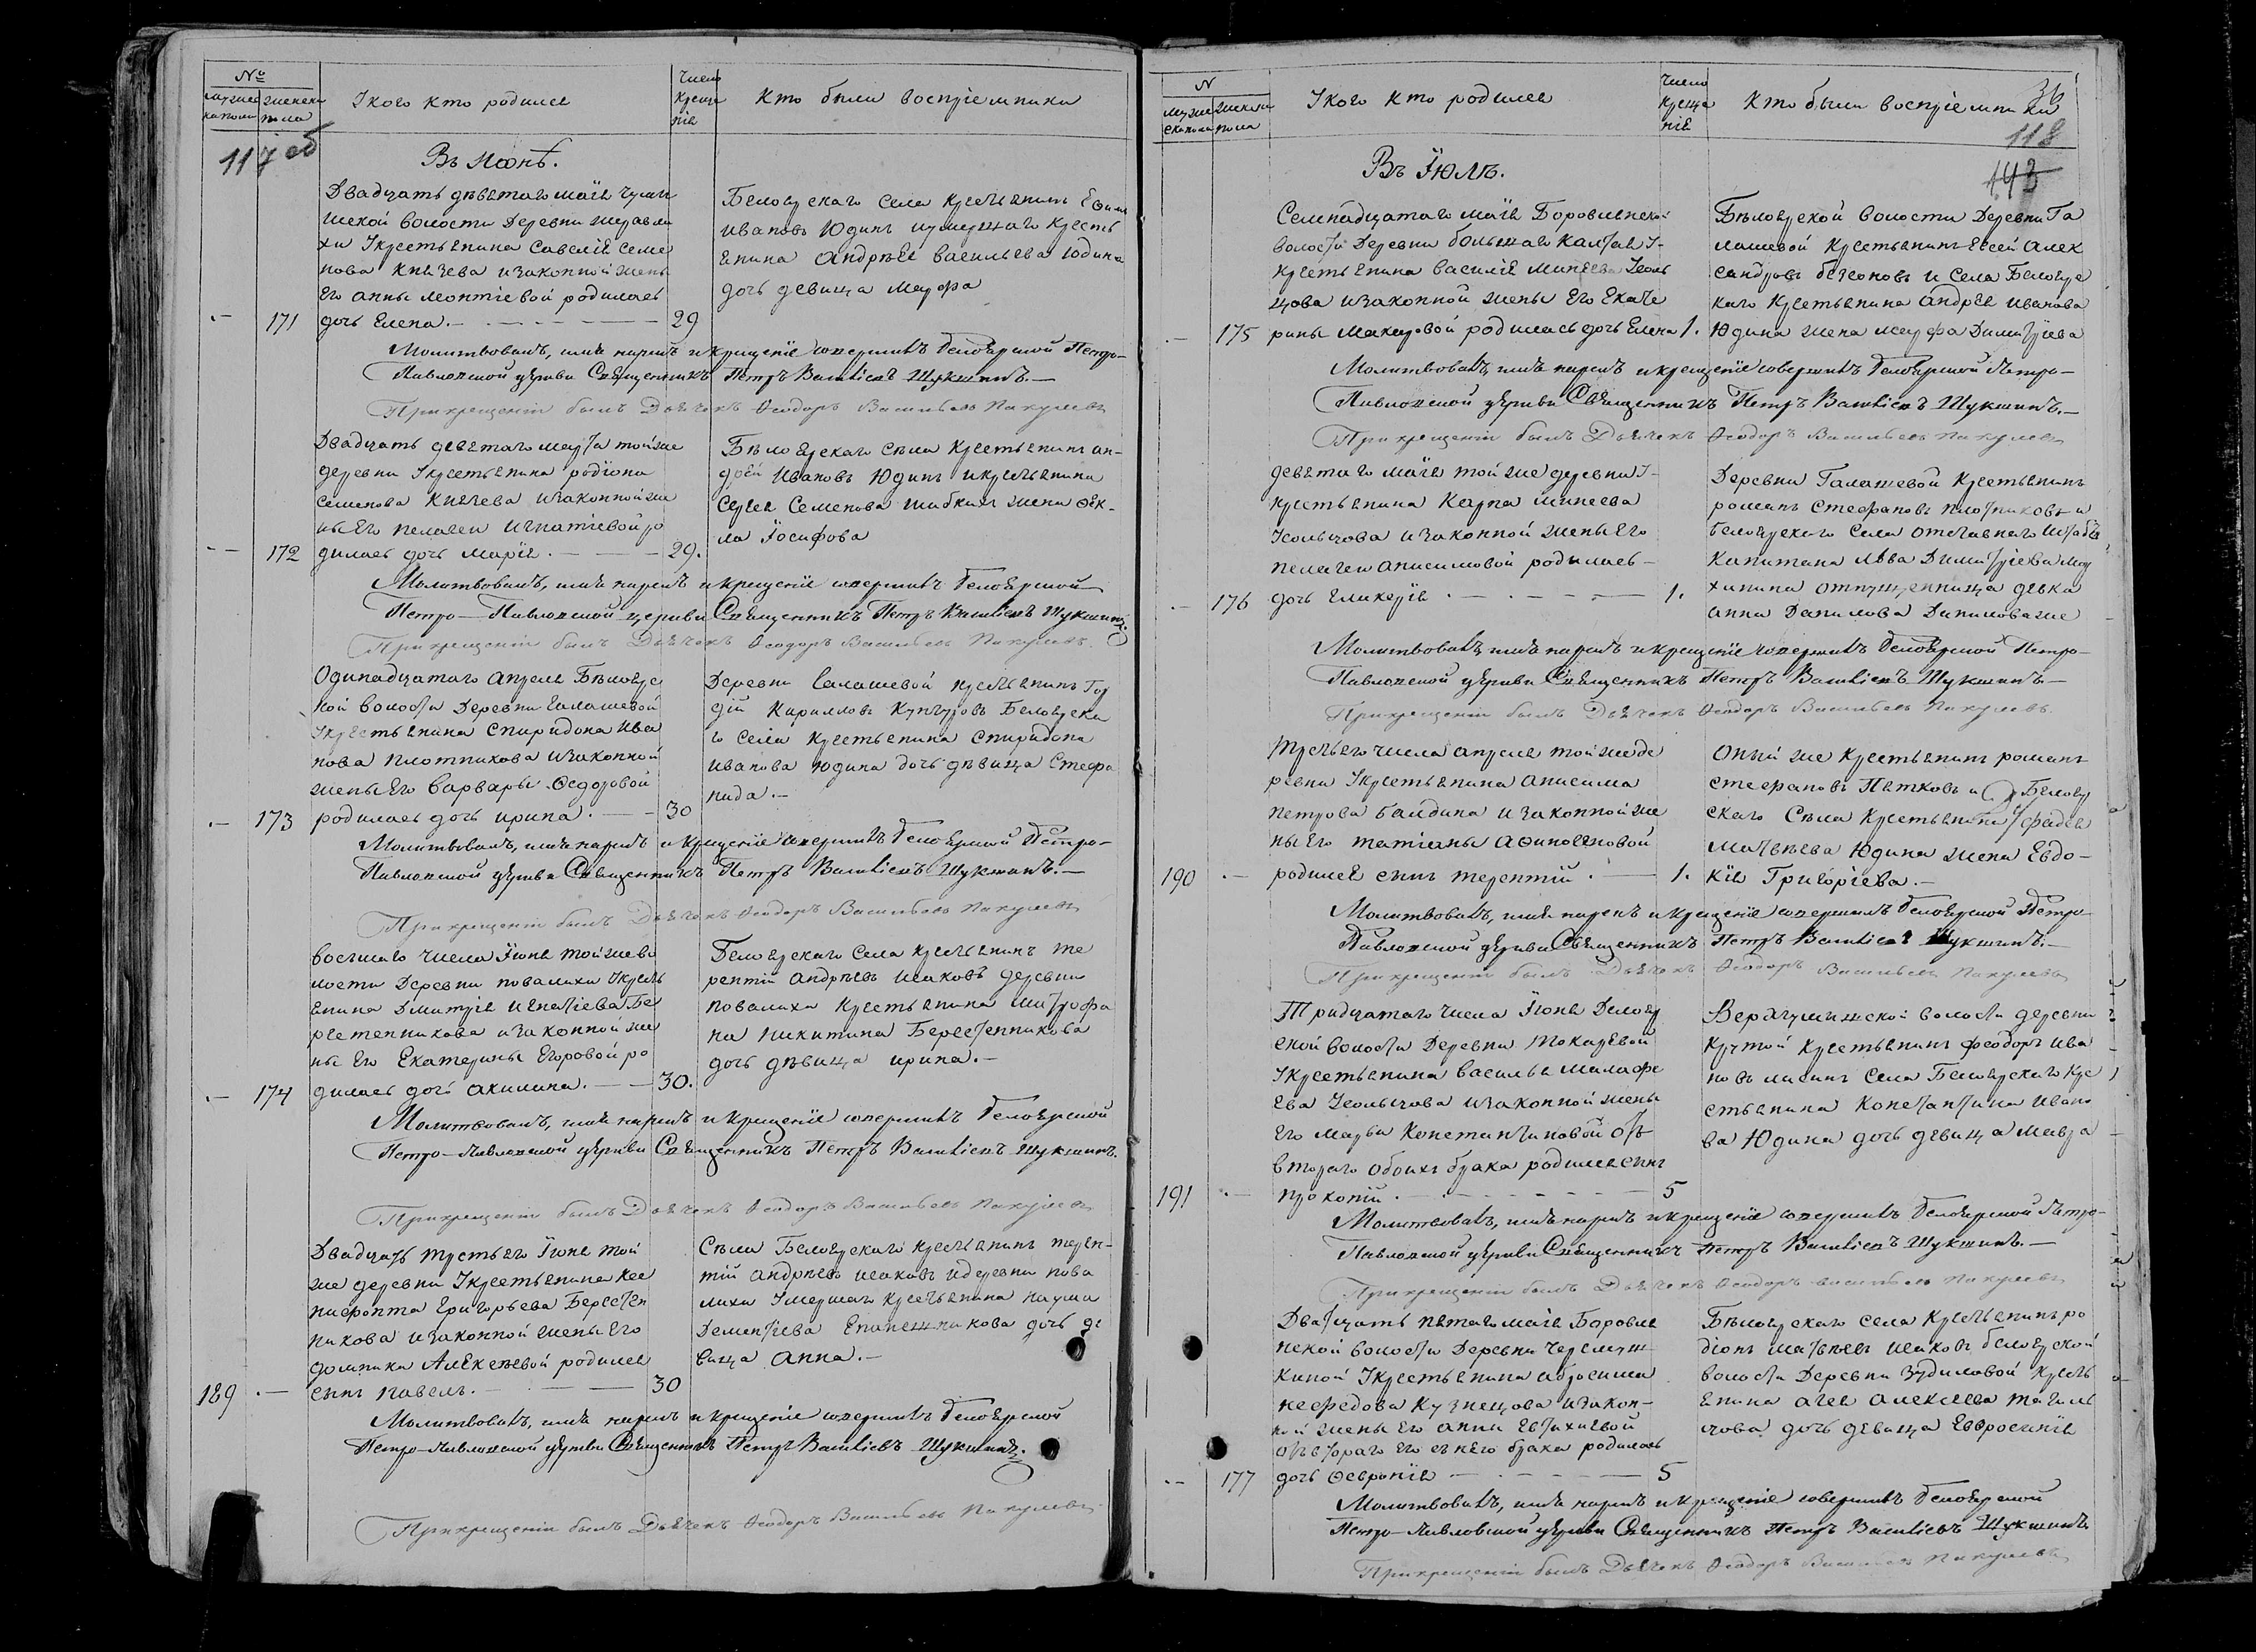 №
мужеска пола
женска пола
У кого кто родился
Число крещенія
Кто были воспріемники
117 об
Въ Іюнѣ.
Двадцать дѣвятаго маія
мской волости Деревни журавли
хи У крестьянина Савелія Семе
нова Князева и законной жены
Его анны леонтіевой родилась
171 дочь Елена. 29
Белоярскаго села крестьянинъ
ивановъ Юдинъ и умершаго кресть
янина Андрѣя васильева Юдина
дочь девица Марфа
Молитвовалъ, имя нарекъ и крещеніе совершилъ Белоярской Петро-
Павловской церкви Священникъ Петръ Васильевъ Шукшинъ.
При крещеніи былъ Дьячекъ Ѳеодоръ Васильевъ
Двадцать девятаго марта той же
деревни У крестьянина родіона
семенова Князева и законной же
ны Его пелагеи игнатіевой ро
172 дилась дочь марія. 29.
Бѣлоярскаго села крестьянинъ ан-
дрей Ивановъ Юдинъ и крестьянина
Сергея Семенова жена Ѳек-
ла Іосифова
Молитвовалъ, имя нарекъ и крещеніе совершилъ белоярской
Петро-Павловской церкви Священникъ Петръ Васильевъ Шукшинъ.
При крещеніи былъ Дьячекъ Ѳеодоръ Васильевъ
Одинадцатаго Апреля Бѣлояр
кой волости Деревни Галашевой
У крестьянина спиридона ива
нова плотникова и законной
жены Его варвары Ѳедоровой
173 родилась дочь ирина. 30
Деревни Галашевой крестьянинъ Гор
дій Кириловъ Белоярска
го села крестьянина спиридона
иванова юдина дочь дѣвица Стефа
нида.
Молитвовалъ, имя нарекъ и крещеніе совершилъ белоярской Петро-
Павловской церкви Священникъ Петръ Васильевъ Шукшинъ.
При крещеніи былъ Дьячекъ Ѳеодоръ Васильевъ
восьмаго числа Іюня той же во
лости Деревни повалихи У кресть
янина Дмитрія игнатіева Бе
рестенникова и законной же
ны Его Екатерины Егоровой ро
174 дилась дочь акилина. 30.
Белоярскаго села крестьянинъ те
рентій андрѣевъ исаковъ деревни
повалихи крестьянина митрофа
на никитина Берестенникова
дочь дѣвица ирина.
Молитвовалъ, имя нарекъ и крещеніе совершилъ белоярской
Петро-Павловской церкви Священникъ Петръ Васильевъ Шукшинъ.
При крещеніи былъ Дьячекъ Ѳеодоръ Васильевъ
Двадцать третьяго Іюня той
же деревни У крестьянина ксе
нофонта григорьева Берестен
никова и законной жены Его
домники Алексѣевой родился
189 сынъ павелъ. 30
Села Белоярскаго крестьянинъ терен-
тій андрѣевъ исаковъ и деревни пова
лихи Умершаго крестьянина наума
Дементіева дочь де
вица Анна.
Молитвовалъ, имя нарекъ и крещеніе совершилъ белоярской
Петро-Павловской церкви Священникъ Петръ Васильевъ Шукшинъ.
При крещеніи былъ Дьячекъ Ѳеодоръ Васильевъ
N
мужеска пола
женска пола
У кого кто родился
Число крещенія
Кто были воспріемники
36
118
143
Въ Іюлѣ.
Семнадцатаго маія Боровлянской
волости Деревни большая У-
крестьянина василія минеева Усоль
цова и законной жены Его Екате
175 рины макаровой родилась дочь Елена 1.
Бѣлоярской волости Деревни Га
лашевой крестьянинъ Евсей алек
сандровъ и села Белояр
каго крестьянина андрея иванова
Юдина жена марфа Димитріева
Молитвовалъ, имя нарекъ и крещеніе совершилъ белоярской Петро-
Павловской церкви Священникъ Петръ Васильевъ Шукшинъ.
При крещеніи былъ Дьячекъ Ѳеодоръ Васильевъ
девятаго маія той же деревни У-
крестьянина Карпа минеева
Усольцова и законной жены Его
пелагеи анисимовой родилась
176 дочь гликерія 1.
Деревни Галашевой крестьянинъ
романъ стефановъ плотниковъ и
белоярскаго села отставнаго штабсъ
капитана льва Димитріева
отпущенница девка
анна Данилова Данилова же
Молитвовалъ, имя нарекъ и крещеніе совершилъ белоярской Петро-
Павловской церкви Священникъ Петръ Васильевъ Шукшинъ.
При крещеніи былъ Дьячекъ Ѳеодоръ Васильевъ
третьяго числа апреля той же де
ревни У крестьянина анисима
петрова и законной же
ны Его татіаны
190 родился сынъ терентій. 1.
Оный же крестьянинъ романъ
стефановъ и Белояр
скаго села крестьянина фадея
матвѣева Юдина жена Евдо-
кія Григоріева.
Молитвовалъ, имя нарекъ и крещеніе совершилъ белоярской Петро
Павловской церкви Священникъ Петръ Васильевъ Шукшинъ.
При крещеніи былъ Дьячекъ Ѳеодоръ Васильевъ
Тридцатаго числа Іюня Белояр
ской волости Деревни Токаревой
У крестьянина василья малафе
ева Усольцова и законной жены
Его марьи Константиновой отъ
втораго обоихъ брака родился сынъ
191 прокопій. 5
волости деревни
крутой крестьянинъ феодоръ ива
новъ села Белоярскаго кре
стьянина Константина ивано
ва Юдина дочь девица мавра
Молитвовалъ, имя нарекъ и крещеніе совершилъ белоярской Петро-
Павловской церкви Священникъ Петръ Васильевъ Шукшинъ.
При крещеніи былъ Дьячекъ Ѳеодоръ васильевъ
Двадцать пятаго маія Боровля
нской волости Деревни
У крестьянина абросима
нефедова Кузнецова и закон-
ной жены Его анны Евтихиевой
отъ втораго его съ нею брака родилась
177 дочь Ѳевронія 5
Бѣлоярскаго села крестьянинъ ро
діонъ матвѣевъ исаковъ белоярской
волости Деревни Зудиловой кресть
янина агея алексеева
дочь девица Евфросинія
Молитвовалъ, имя нарекъ и крещеніе совершилъ белоярской
Петро-Павловской церкви Священникъ Петръ Васильевъ Шукшинъ
При крещеніи былъ Дьячекъ Ѳеодоръ Васильевъ